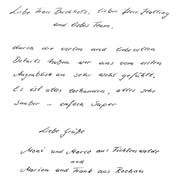 Liebe Frau Buchholz, lieber Herr Helling
und liebes Team,
durch die vielen und liebevollen
Details haben wir uns vom ersten
Augenblick an sehr wohl gefühlt.
Es ist alles vorhanden, alles sehr
sauber - einfach Super
Liebe Grüße
Mani und Marco aus Fichtenwalde
und
Marion und Frank aus Rochau